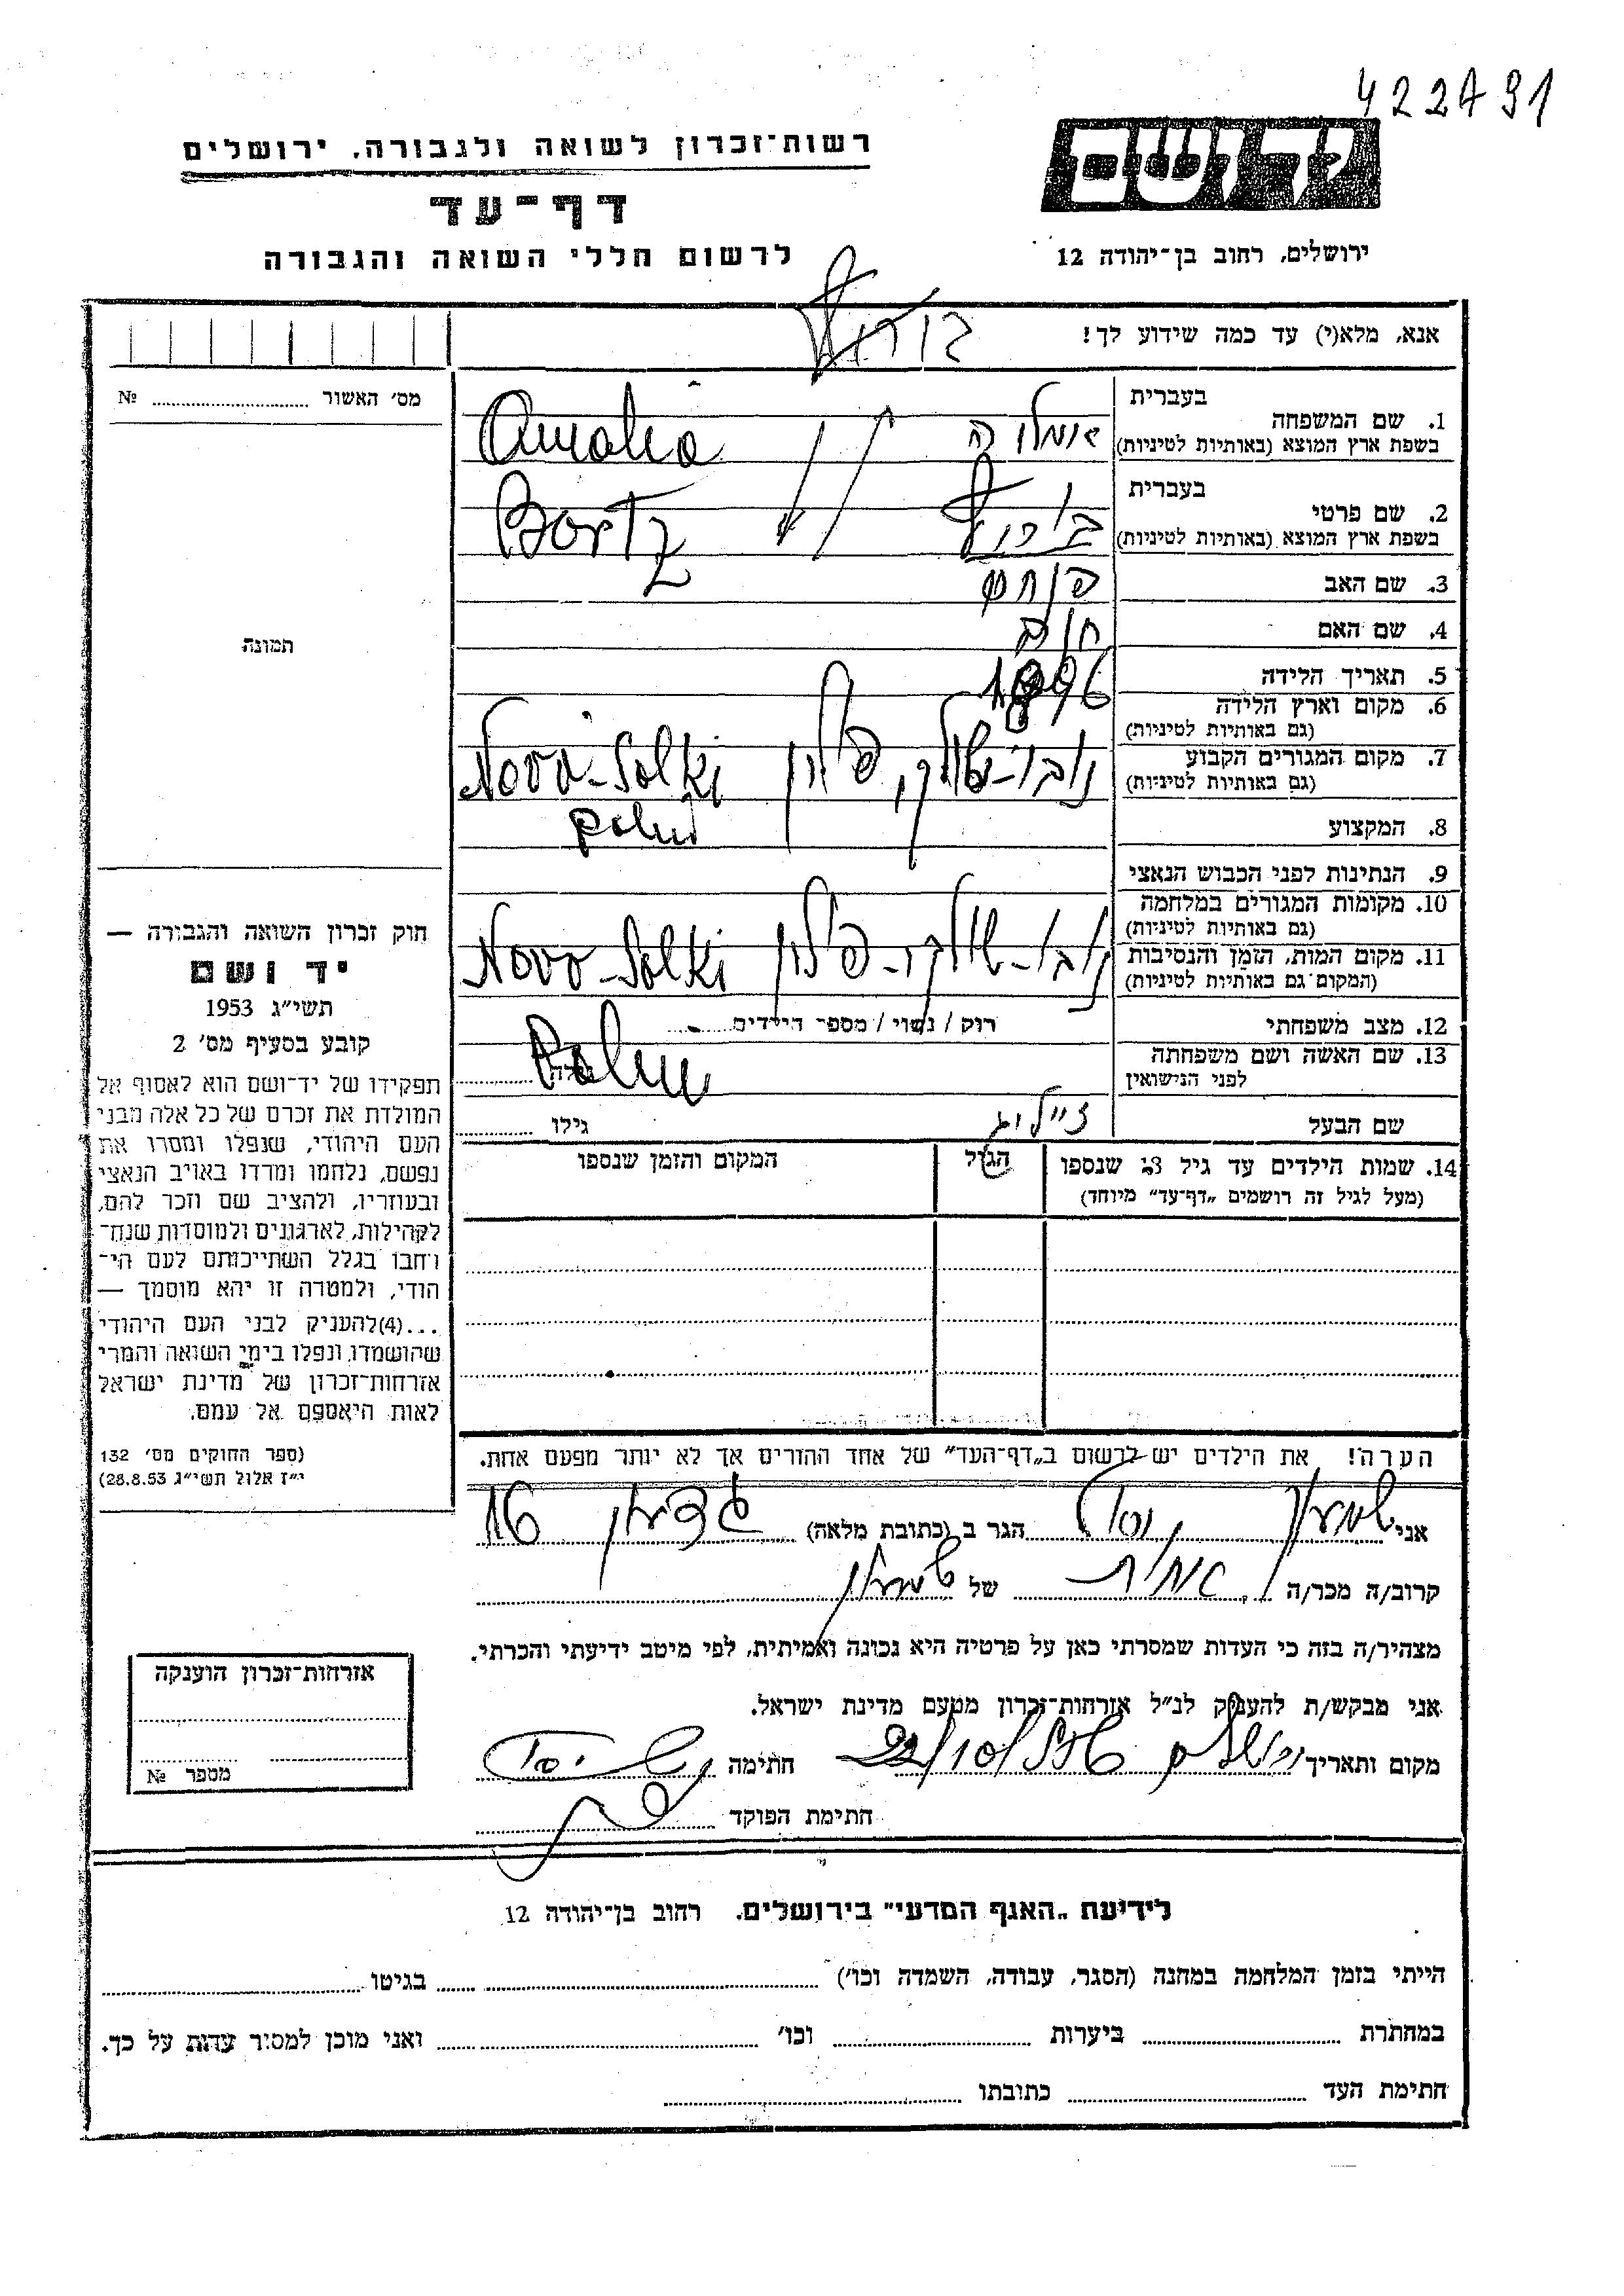 422491
יד ושם
רשות־זכרון לשואה ולגבורה, ירושלים
דף־עד
ירושלים, רחוב בן־יהודה 12
לרשום חללי השואה והגבורה
אנא, מלא(י) עד כמה שידוע לך!
מס' האשור № 
1. שם המשפחה
בעברית
אמליה
בשפת ארץ המוצא (באותיות לטיניות)
Amalia
2. שם פרטי
בעברית
בשפת ארץ המוצא (באותיות לטיניות)
Bortz
3. שם האב
פנחס
4. שם האם
5. תאריך הלידה
1896
6. מקום וארץ הלידה
(גם באותיות לטיניות)
7. מקום המגורים הקבוע
(גם באותיות לטיניות)
פולין
Novo-Solki
Polin
8. המקצוע
9. הנתינות לפני הכבוש הנאצי
10. מקומות המגורים במלחמה
(גם באותיות לטיניות)
11. מקום המות, הזמן והנסיבות
(המקום גם באותיות לטיניות)
פולין
Novo-Solki
Polin
12. מצב משפחתי
רוק / נשוי / מספר הילדים
13. שם האשה ושם משפחתה
לפני הנישואין
שם הבעל
זייליג
גילו
14. שמות הילדים עד גיל 18 שנספו
(מעל לגיל זה רושמים „דף־עד" מיוחד)
הגיל
המקום והזמן שנספו
תמונה
חוק זכרון השואה והגבורה —
יד ושם
תשי"ג 1953
קובע בסעיף מס' 2
תפקידו של יד־ושם הוא לאסוף אל
המולדת את זכרם של כל אלה מבני
העם היהודי, שנפלו ומסרו את
נפשם, נלחמו ומרדו באויב הנאצי
ובעוזריו, ולהציב שם וזכר להם,
לקהילות, לארגונים ולמוסדות שנח־
רבו בגלל השתייכותם לעם הי־
הודי, ולמטרה זו יהא מוסמך —
...(4)להעניק לבני העם היהודי
שהושמדו ונפלו בימי השואה והמרי
אזרחות־זכרון של מדינת ישראל
לאות היאספם אל עמם.
(ספר החוקים מס' 132
י"ז אלול תשי"ג 28.8.53)
הערה! את הילדים יש לרשום ב„דף־העד" של אחד ההורים אך לא יותר מפעם אחת.
אני שמעון יוסף הגר ב (כתובת מלאה) 16
קרוב/ה מכר/ה אחות של שמעון
מצהיר/ה בזה כי העדות שמסרתי כאן על פרטיה היא נכונה ואמיתית, לפי מיטב ידיעתי והכרתי.
אני מבקש/ת להעניק לנ"ל אזרחות־זכרון מטעם מדינת ישראל.
מקום ותאריך ירושלים חתימה
חתימת הפוקד
אזרחות־זכרון הוענקה
מספר №
לידיעת „האגף המדעי" בירושלים, רחוב בן־יהודה 12
הייתי בזמן המלחמה במחנה (הסגר, עבודה, השמדה וכו') בגיטו
במחתרת ביערות וכו' ואני מוכן למסיר עדות על כך.
חתימת העד כתובתו